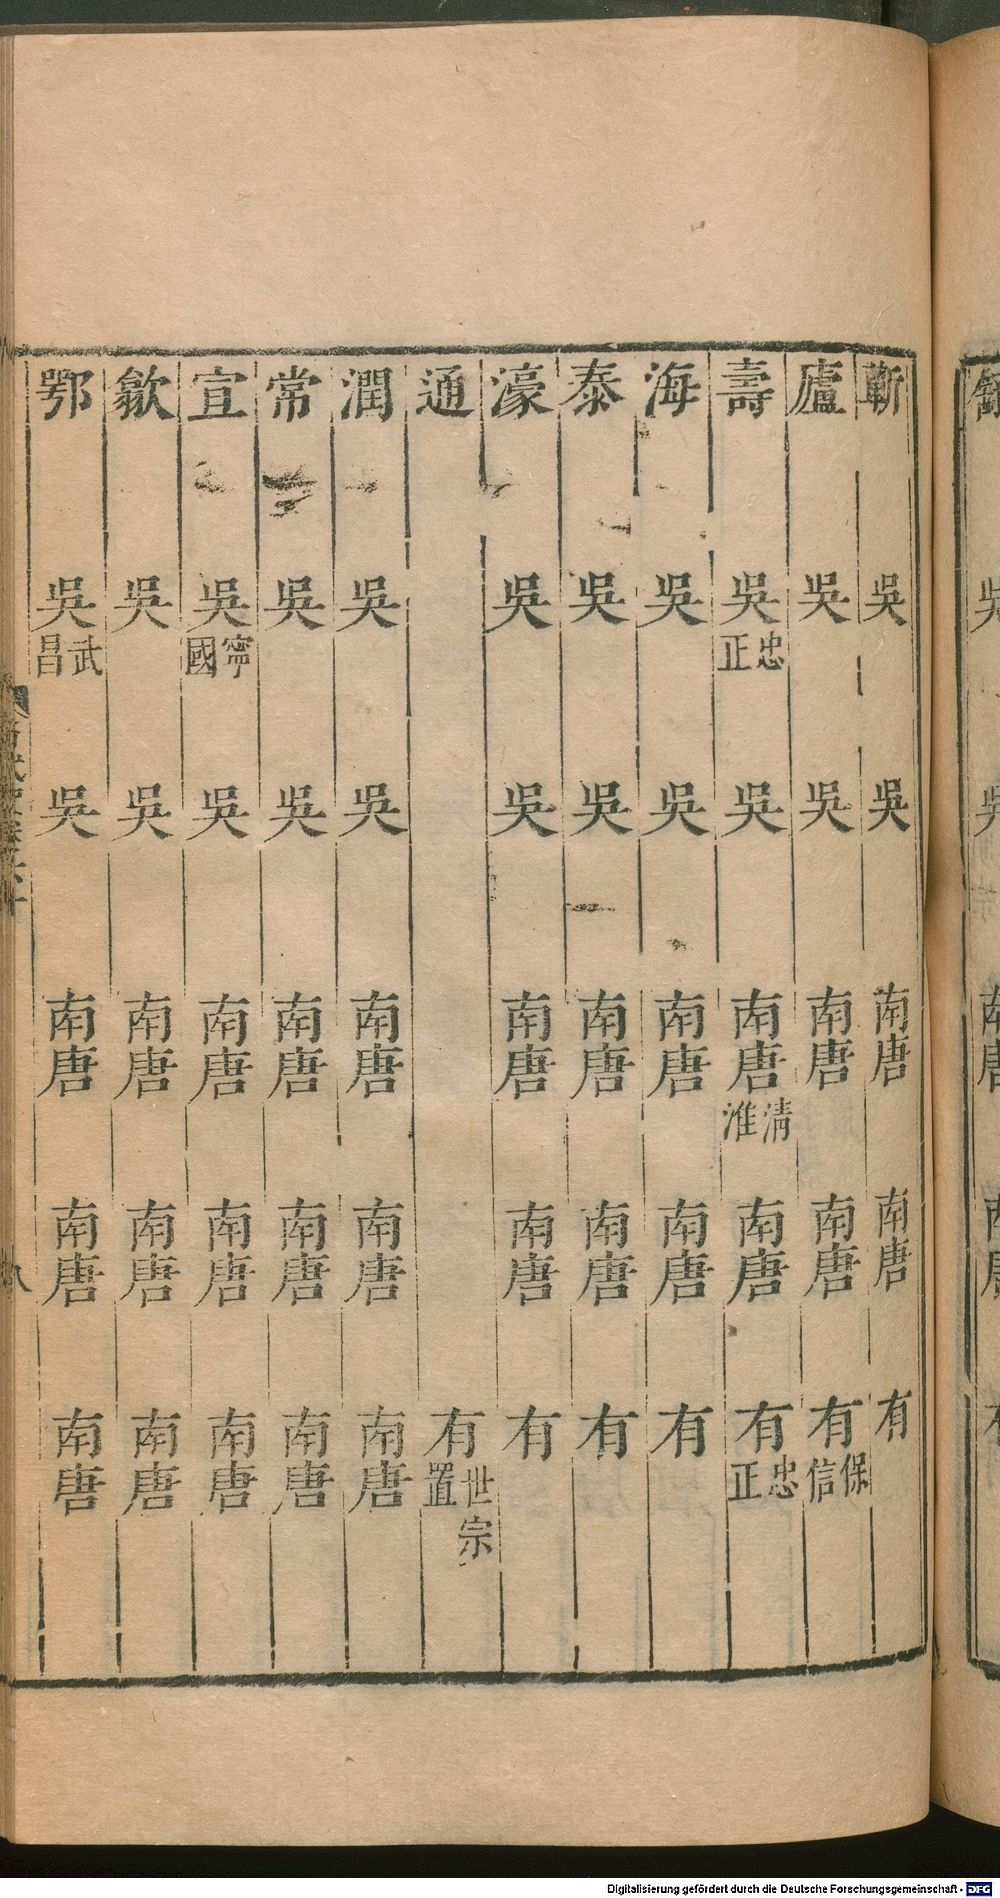 蘄 吳 吳 南唐 南唐 有
廬 吳 吳 南唐 南唐 有保信
壽 吳忠正 吳 南唐清淮 南唐 有忠正
海 吳 吳 南唐 南唐 有
泰 吳 吳 南唐 南唐 有
濠 吳 吳 南唐 南唐 有
通 有世宗置
潤 吳 吳 南唐 南唐 南唐
常 吳 吳 南唐 南唐 南唐
宣 吳寧國 吳 南唐 南唐 南唐
歙 吳 吳 南唐 南唐 南唐
鄂 吳武昌 吳 南唐 南唐 南唐
八
Digitalisierung gefördert durch die Deutsche Forschungsgemeinschaft - DFG